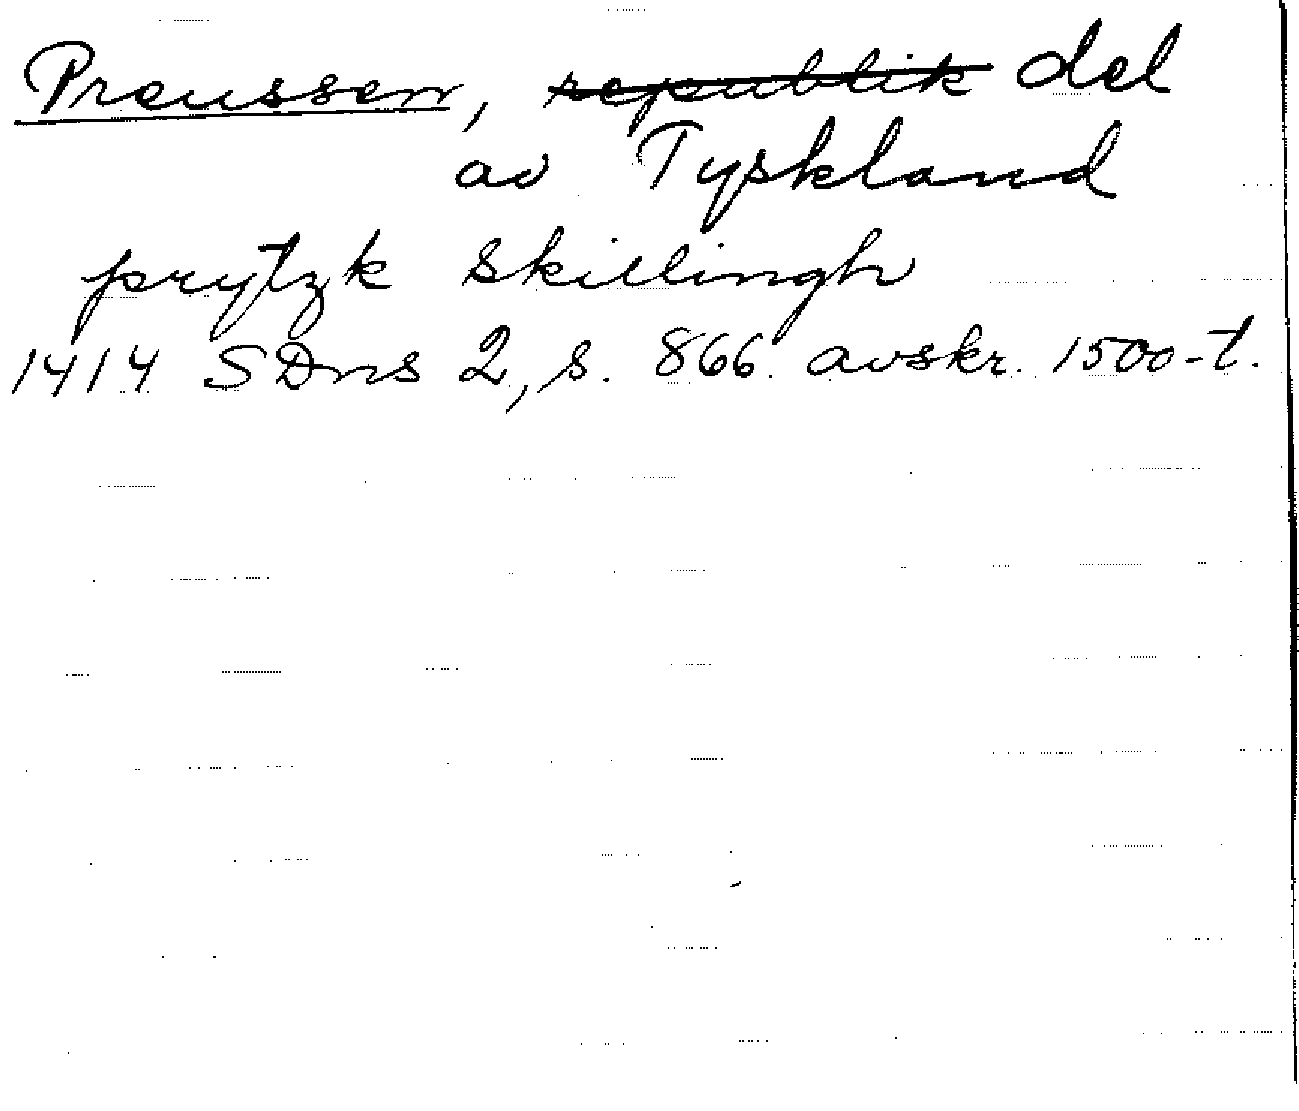 Preussen, republik del
av Tyskland
prytzk skillingh
1414 SDns 2, s. 866. avskr. 1500-t.